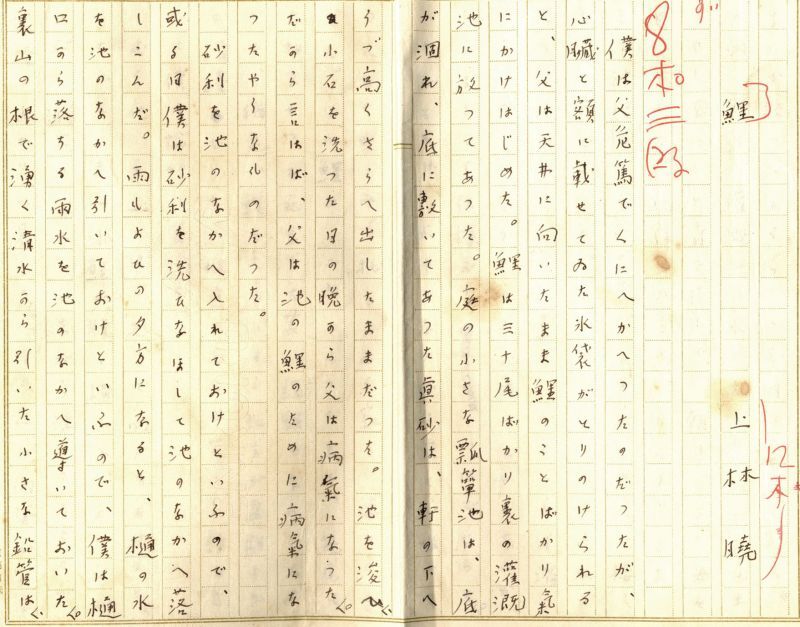 鯉
上林曉
8ポ三段
12ポ
僕は父危篤でくにへかへつたのだつたが、
心臓と額に載せてゐた氷袋がとりのけられる
と、父は天井に向いたまま鯉のことばかり氣
にかけはじめた。鯉は三十尾ばかり裏の灌漑
池に放つてあつた。庭の小さな瓢箪池は、底
が涸れ、底に敷いてあつた眞砂は、軒の下へ
うづ高くさらへ出したままだつた。池を浚へ、
小石を洗つた日の晩から父は病氣になつた。
だから言はば、父は池の鯉のために病氣にな
つたやうなものだつた。
砂利を池のなかへ入れておけといふので、
或る日僕は砂利を洗ひなほして池のなかへ落
しこんだ。雨もよひの夕方になると、樋の水
を池のなかへ引いておけといふので、僕は樋
口から落ちる雨水を池のなかへ導いておいた。
裏山の根で湧く清水から引いた小さな鉛管は、